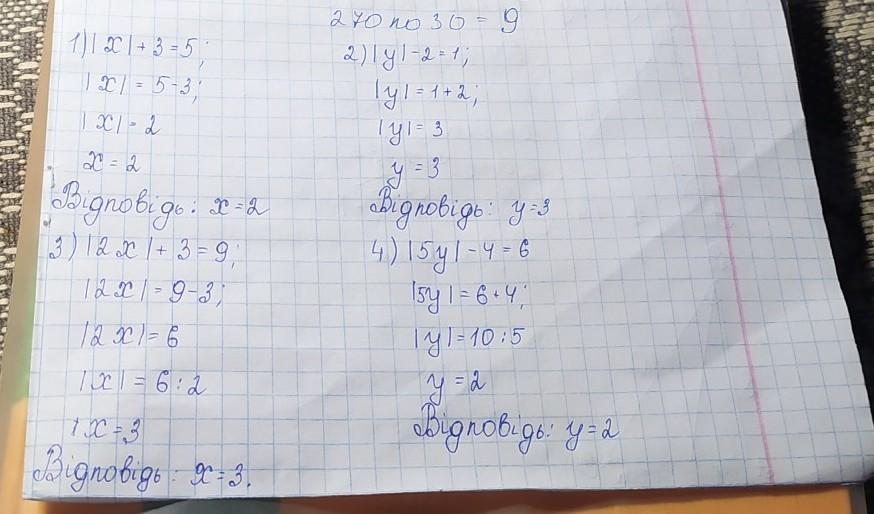 270 по 30 = 9
1) |x| + 3 = 5;
|x| = 5-3;
|x| = 2
x = 2
Відповідь: x=2
2) |y| - 2 = 1;
|y| = 1+2;
|y| = 3
y = 3
Відповідь: y=3
3) |2x| + 3 = 9;
|2x| = 9-3;
|2x| = 6
|x| = 6:2
|x=3
Відповідь: x=3.
4) |5y| - 4 = 6
|5y| = 6+4;
|y| = 10:5
y = 2
Відповідь: y=2